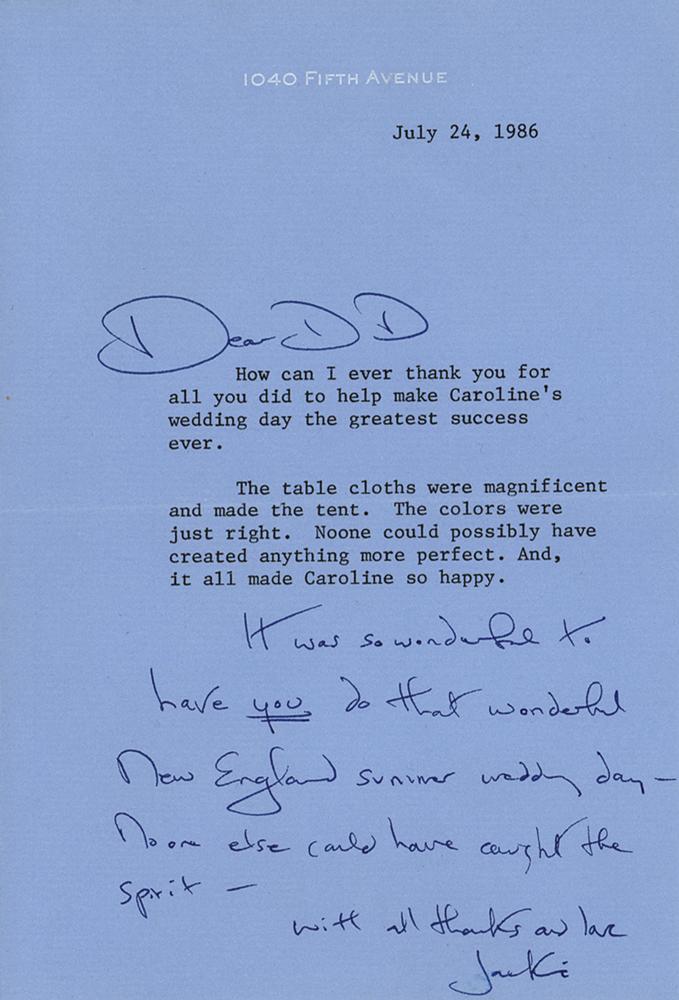 1040 FIFTH AVENUE
July 24, 1986
Dear DD
How can I ever thank you for
all you did to help make Caroline's
wedding day the greatest success
ever.
The table cloths were magnificent
and made the tent.  The colors were
just right.  Noone could possibly have
created anything more perfect. And,
it all made Caroline so happy.
It was so wonderful to
have you do that wonderful
New England summer wedding day —
No one else could have caught the
spirit —
with all thanks and love
Jackie